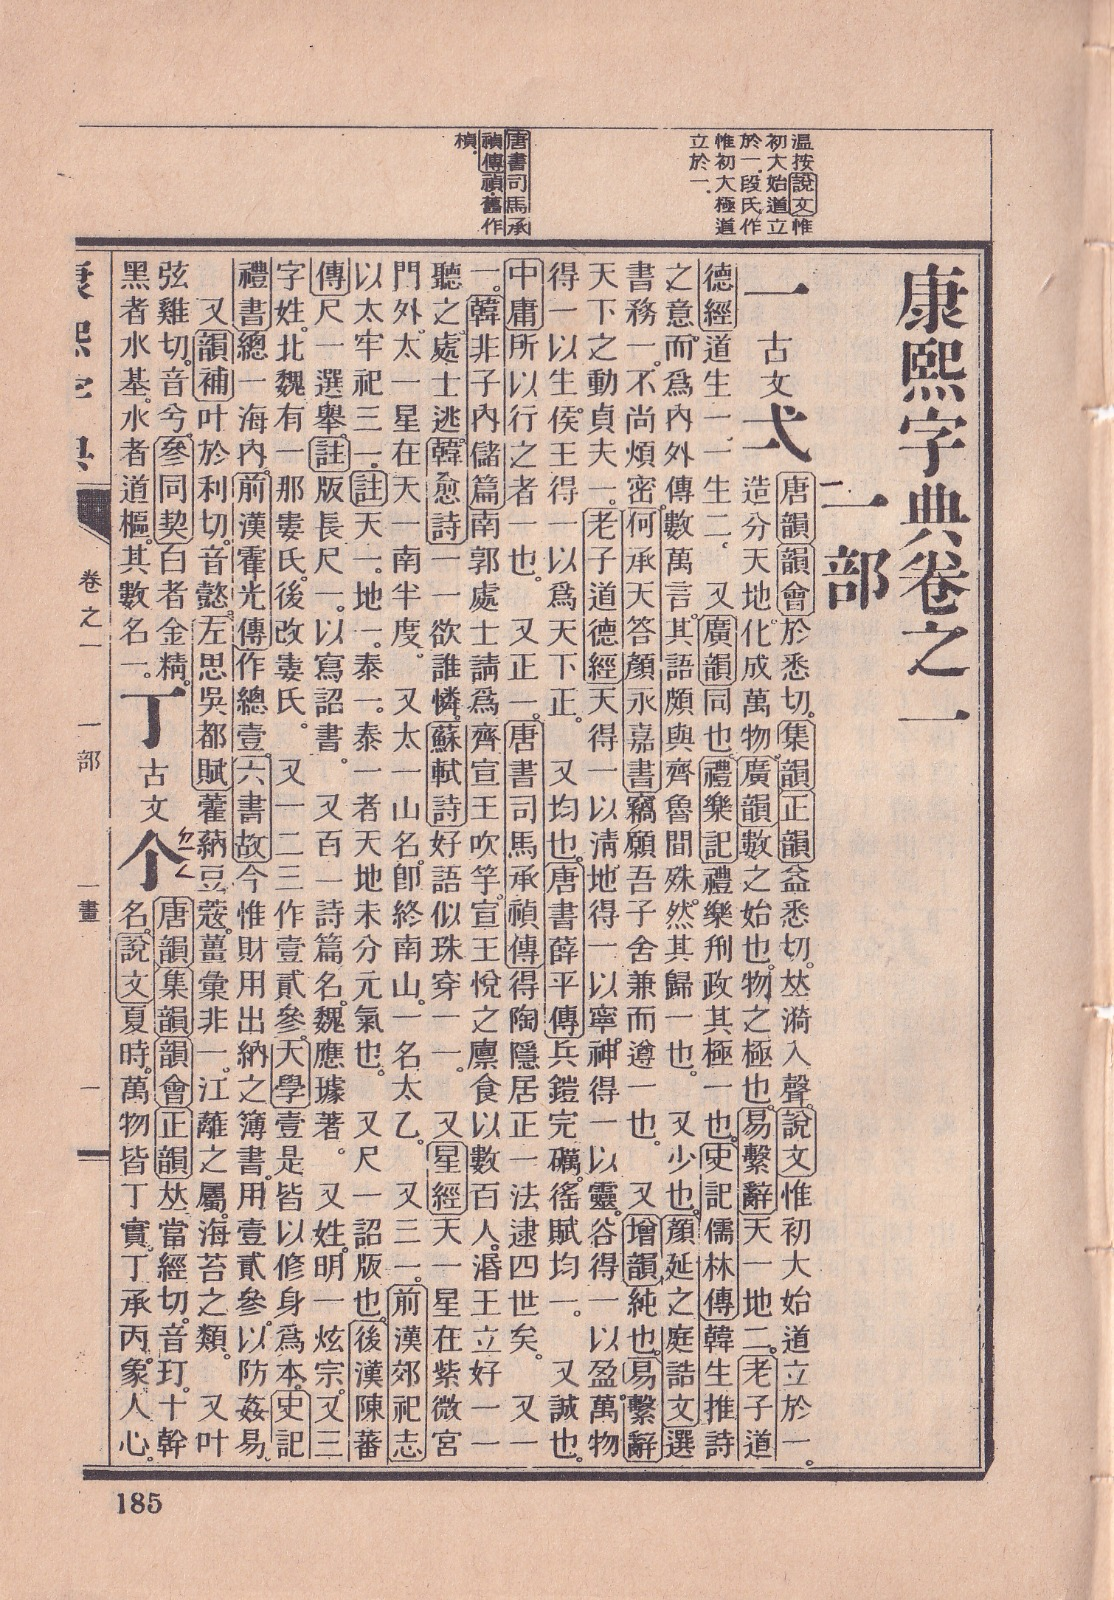 温按說文惟
初大始道立
於一段氏作
惟初大極道
立於一
唐書司馬承
禎傳禎舊作
楨
康熙字典卷之一
一部
一 古文弌
唐韻韻會於悉切。集韻正韻益悉切。𠀤漪入聲。說文惟初大始道立於一。
造分天地化成萬物。廣韻數之始也。物之極也。易繫辭天一地二。老子道
德經道生一。一生二。 又廣韻同也。禮樂記禮樂𠛬政其極一也。史記儒林傳韓生推詩
之意而爲內外傳數萬言。其語頗與齊魯間殊。然其歸一也。 又少也。顏延之庭誥文選
書務一。不尚煩密。何承天答顏永嘉書竊願吾子舍兼而遵一也。 又增韻純也。易繫辭
天下之動貞夫一。老子道德經天得一以淸。地得一以寧。神得一以靈。谷得一以盈。萬物
得一以生。侯王得一以爲天下正。 又均也。唐書薛平傳兵鎧完礪。徭賦均一。 又誠也。
中庸所以行之者一也。 又正一。唐書司馬承禎傳得陶隱居正一法逮四世矣。 又一
一。韓非子內儲篇南郭處士請爲齊宣王吹竽。宣王悅之。廩食以數百人。湣王立好一一
聽之。處士逃。韓愈詩一一欲誰憐。蘇軾詩好語似珠穿一一。 又星經天一星在紫微宮
門外。太一星在天一南半度。 又太一山名。卽終南山。一名太乙。 又三一。前漢郊祀志
以太牢祀三一。註天一。地一。泰一。泰一者天地未分元氣也。 又尺一詔版也。後漢陳蕃
傳尺一選舉。註版長尺一。以寫詔書。 又百一詩篇名。魏應璩著。 又姓。明一炫宗。又三
字姓。北魏有一那婁氏。後改婁氏。 又一二三作壹貳參。大學壹是皆以修身爲本。史記
禮書總一海內。前漢霍光傳作總壹。六書故今惟財用出納之簿書。用壹貳參以防姦易。
又韻補叶於利切。音懿。左思吳都賦藿蒳豆蔻。薑彙非一。江蘺之屬。海苔之類。 又叶
弦雞切。音兮。參同契百者金精。
黑者水基。水者道樞。其數名一。
丁 古文个
ㄉㄧㄥ
唐韻集韻韻會正韻𠀤當經切。音玎。十幹
名。說文夏時。萬物皆丁實。丁承丙。象人心。
康熙字典
卷之一 一部 一畫 一
185